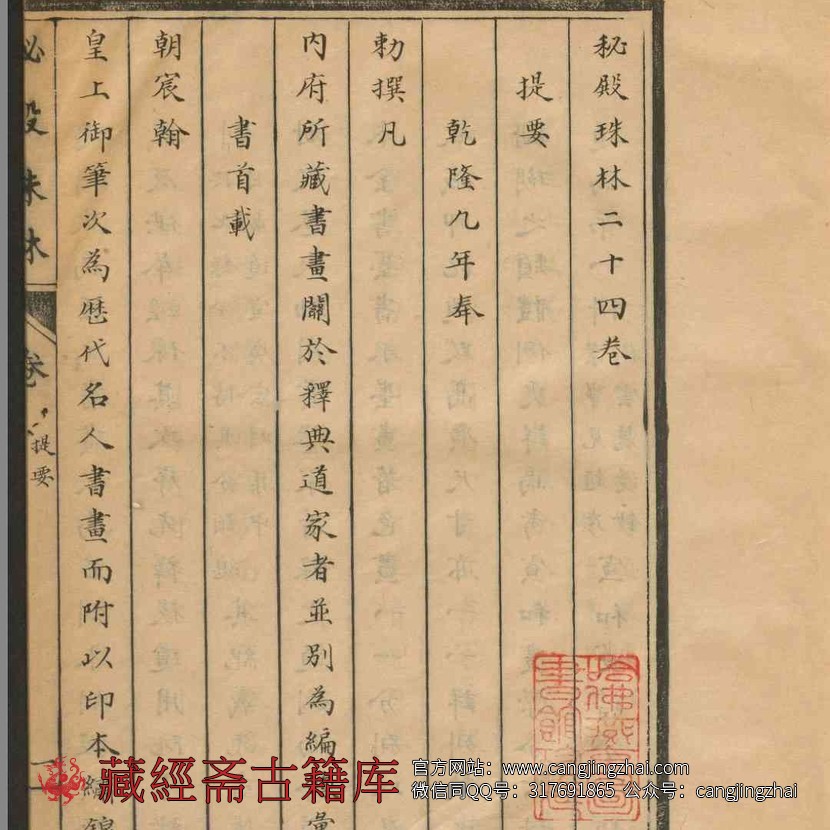 秘殿珠林二十四卷
提要
乾隆九年奉
勅撰凡
内府所藏書畫關於釋典道家者並別為編
書首載
朝宸翰
皇上御筆次為歴代名人書畫而附以印本
秘殿珠林
卷
提要
藏經斋古籍库
官方网站:www.cangjingzhai.com
微信同QQ号:317691865 公众号:cangjingzhai